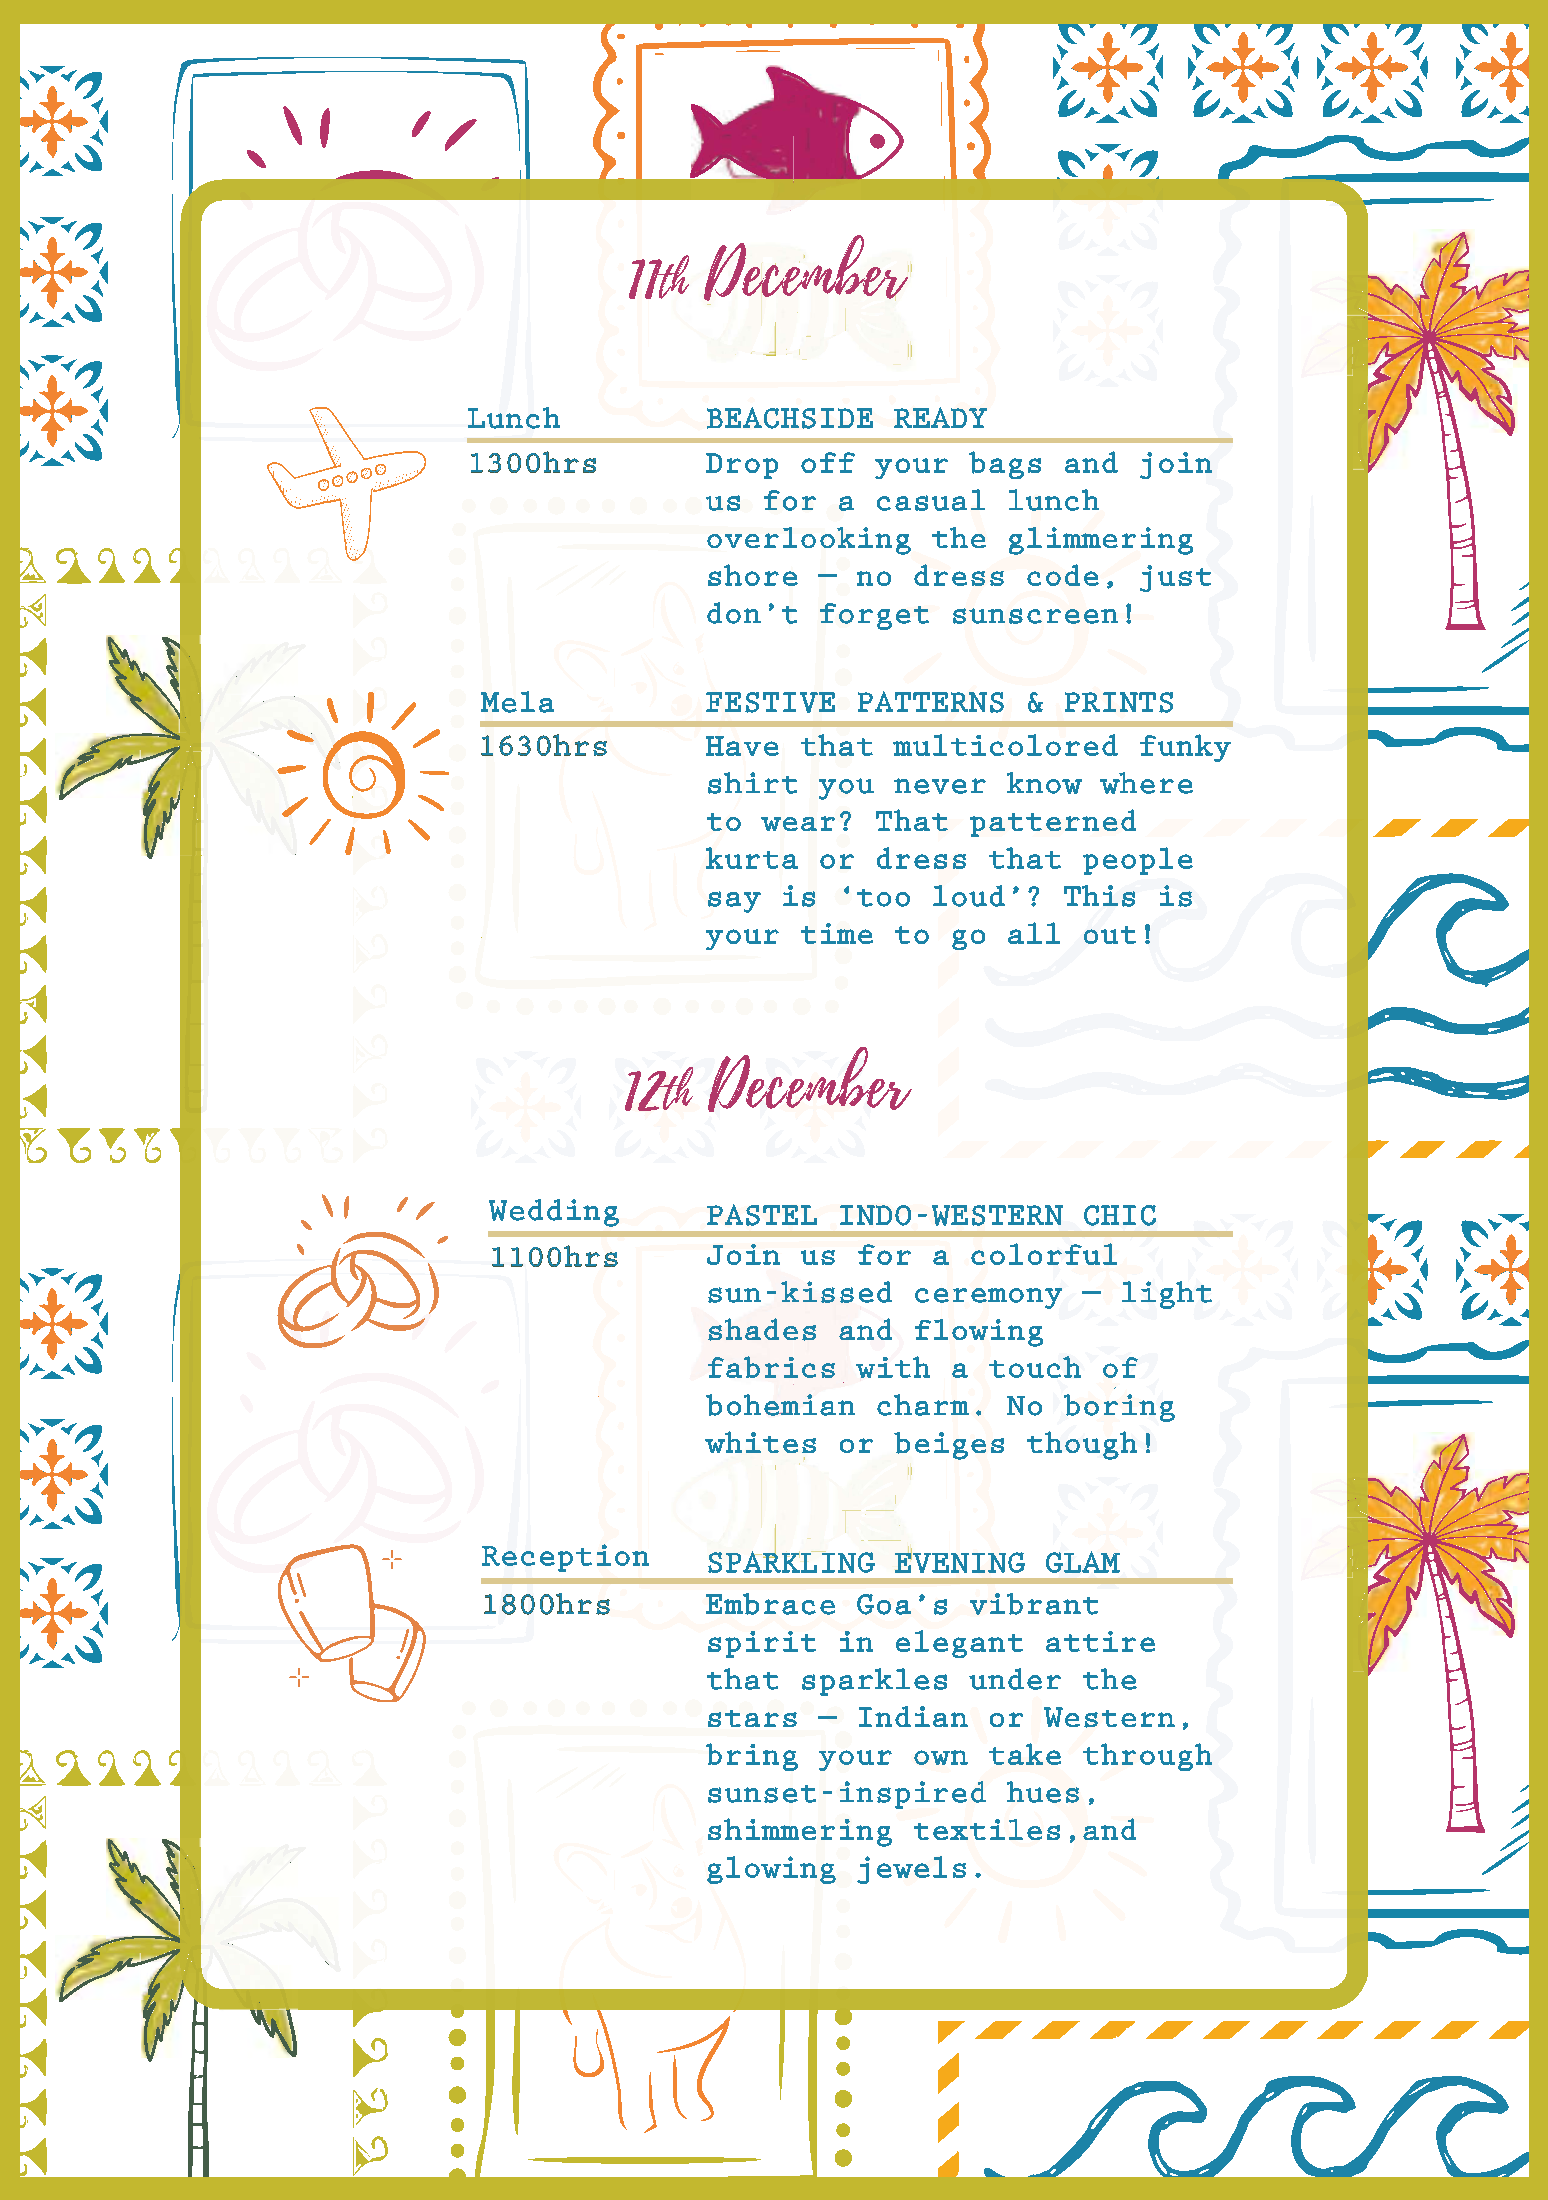 11th December
Lunch
BEACHSIDE READY
1300hrs
Drop off your bags and join
us for a casual lunch
overlooking the glimmering
shore — no dress code, just
don't forget sunscreen!
Mela
FESTIVE PATTERNS & PRINTS
1630hrs
Have that multicolored funky
shirt you never know where
to wear? That patterned
kurta or dress that people
say is ‘too loud’? This is
your time to go all out!
12th December
Wedding
PASTEL INDO-WESTERN CHIC
1100hrs
Join us for a colorful
sun-kissed ceremony — light
shades and flowing
fabrics with a touch of
bohemian charm. No boring
whites or beiges though!
Reception
SPARKLING EVENING GLAM
1800hrs
Embrace Goa’s vibrant
spirit in elegant attire
that sparkles under the
stars — Indian or Western,
bring your own take through
sunset-inspired hues,
shimmering textiles,and
glowing jewels.